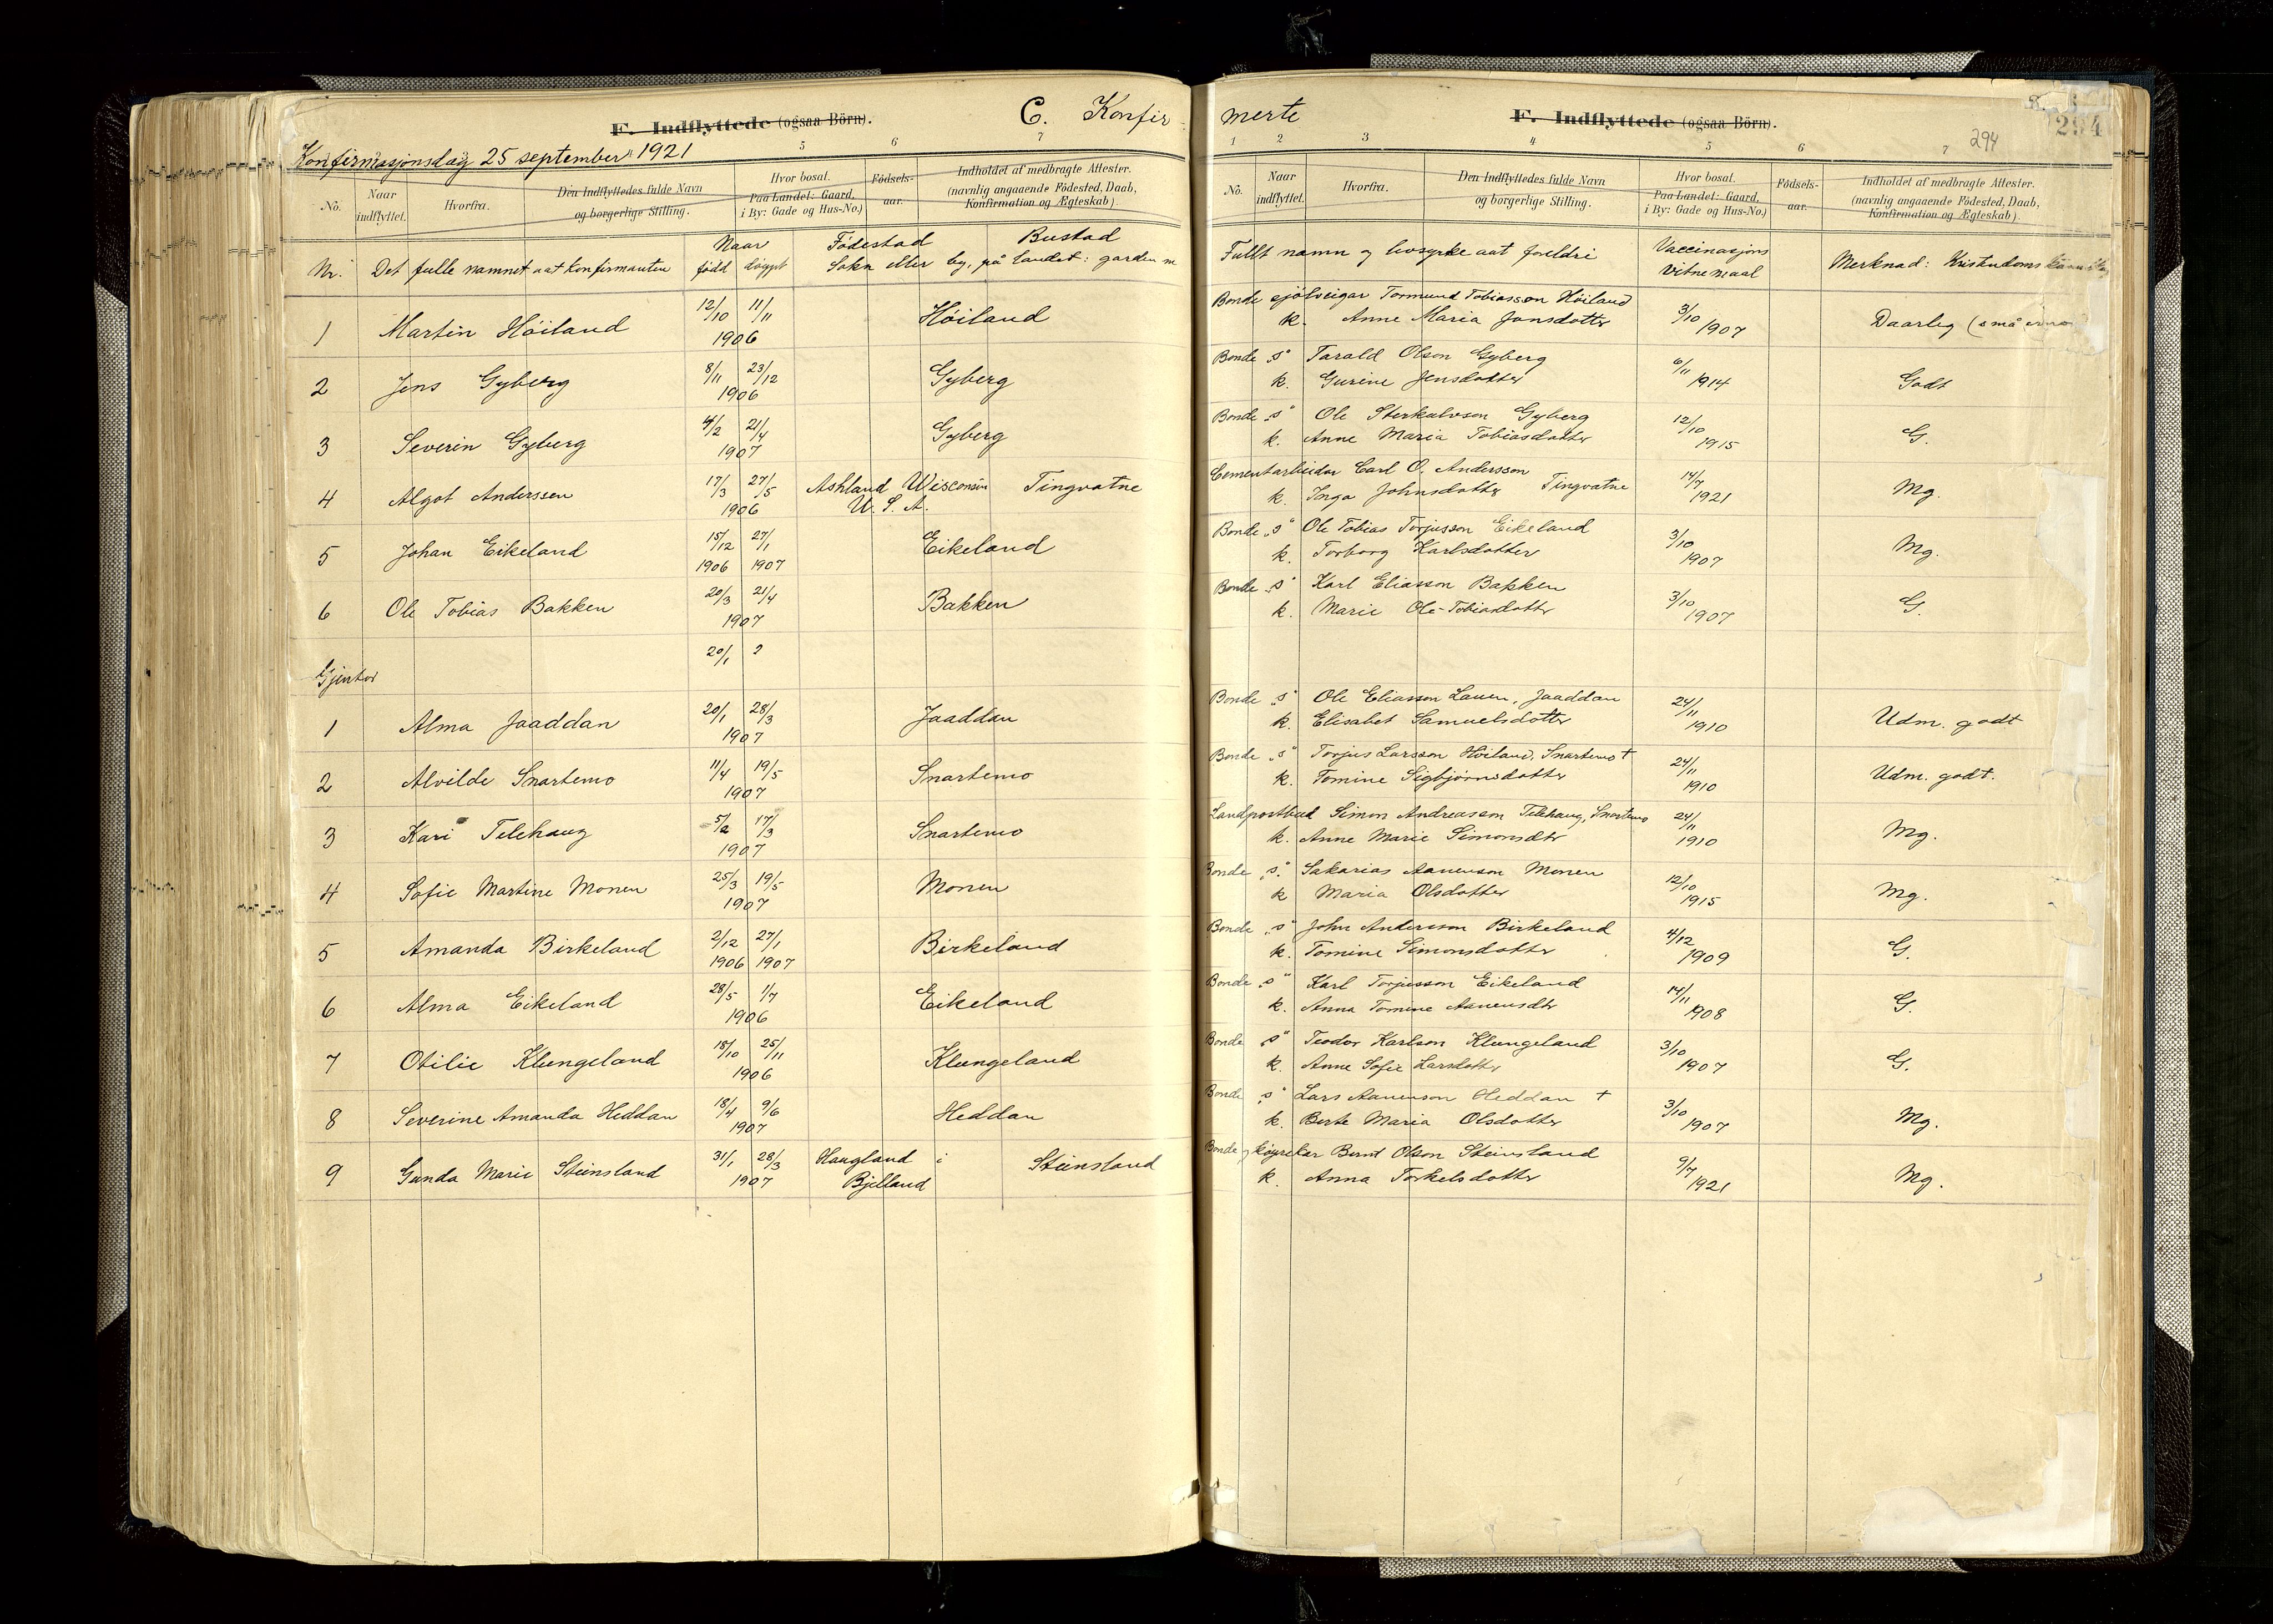 C. Konfir- merte
E. Indflyttede (ogsaa Börn).
E. Indflyttede (ogsaa Börn).
294
294
Konfirmasjonsdag 25 september 1921
5 6 7
1 2 3 4 5 6 7
No. Naar indflyttet. Hvorfra. Den Indflyttedes fulde Navn og borgerlige Stilling. Hvor bosat. Paa Landet: Gaard, i By: Gade og Hus-No.) Fødsels-aar. Indholdet af medbragte Attester. (navnlig angaaende Födested, Daab, Konfirmation og Ægteskab).
No. Naar indflyttet. Hvorfra. Den Indflyttedes fulde Navn og borgerlige Stilling. Hvor bosat. Paa Landet: Gaard, i By: Gade og Hus-No.) Födsels-aar. Indholdet af medbragte Attester. (navnlig angaaende Födested, Daab, Konfirmation og Ægteskab).
Nr. Det fulle namnet aat Konfirmanten Naar född döypt Födestad Bustad Sokn eller by, på landet: garden
Fullt namn og livsyrke aat foreldri Vaccinasjons Vitnemaal Merknad: Kristendoms
1 Martin Höiland 12/10 11/11 1906 Höiland Bonde sjölveigar Tormund Tobiasson Höiland
k. Anne Maria Jonsdotter 3/10 1907 Daarleg (små
2 Jens Gyberg 8/11 23/12 1906 Gyberg Bonde "s" Tarald Olson Gyberg
k. Gurine Jensdotter 6/11 1914 Godt
3 Severin Gyberg 4/2 21/4 1907 Gyberg Bonde "s" Ole Sterkulvson Gyberg
k. Anne Maria Tobiasdotter 12/10 1915 G.
4 Algot Anderssen 17/3 27/5 1906 Ashland Wisconsin U. S. A. Tingvatne Cementarbeidar Carl O. Andersson
k. Inga Johnsdotter Tingvatne 14/7 1921 Mg.
5 Johan Eikeland 15/12 1906 27/1 1907 Eikeland Bonde "s" Ole Tobias Torjusson Eikeland
k. Torborg Karlsdotter 3/10 1907 Mg.
6 Ole Tobias Bakken 20/3 21/4 1907 Bakken Bonde "s" Karl Eliasson Bakken
k. Marie Ole-Tobiasdotter 3/10 1907 G.
20/1 2
Gjentor
1 Alma Jaaddan 20/1 28/3 1907 Jaaddan Bonde "s" Ole Eliasson Lauen, Jaaddan
k. Elisabet Samuelsdotter 24/11 1910 Udm. godt
2 Alvilde Snartemo 11/4 19/5 1907 Snartemo Bonde "s" Torjus Larsson Höiland, Snartemo †
k. Tomine Sigbjörnsdotter 24/11 1910 Udm. godt.
3 Kari Telehaug 5/2 17/3 1907 Snartemo Landpostbud Simon Andreasson Telehaug, Snartemo
k. Anne Marie Simonsdtr 24/11 1910 Mg.
4 Sofie Martine Monen 25/3 19/5 1907 Monen Bonde "s" Sakarias Aanenson Monen
k Maria Olsdotter 12/10 1915 Mg.
5 Amanda Birkeland 2/12 1906 27/1 1907 Birkeland Bonde "s" John Andersson Birkeland
k. Tomine Simonsdotter 4/12 1909 G.
6 Alma Eikeland 28/5 1/7 1906 Eikeland Bonde "s" Karl Torjusson Eikeland
k. Anna Tomine Aanensdtr 14/11 1908 G.
7 Otilie Klungeland 18/10 25/11 1906 Klungeland Bonde "s" Teodor Karlson Klungeland
k. Anne Sofie Larsdotter 3/10 1907 G.
8 Severine Amanda Heddan 18/4 9/6 1907 Heddan Bonde "s" Lars Aanenson Heddan †
k. Berte Maria Olsdotter 3/10 1907 Mg.
9 Gunda Marie Steinsland 31/1 28/3 1907 Haugland i Bjelland Steinsland Bonde og köyrekar Bernt Olson Steinsland
k. Anna Torkelsdotter 9/7 1921 Mg.